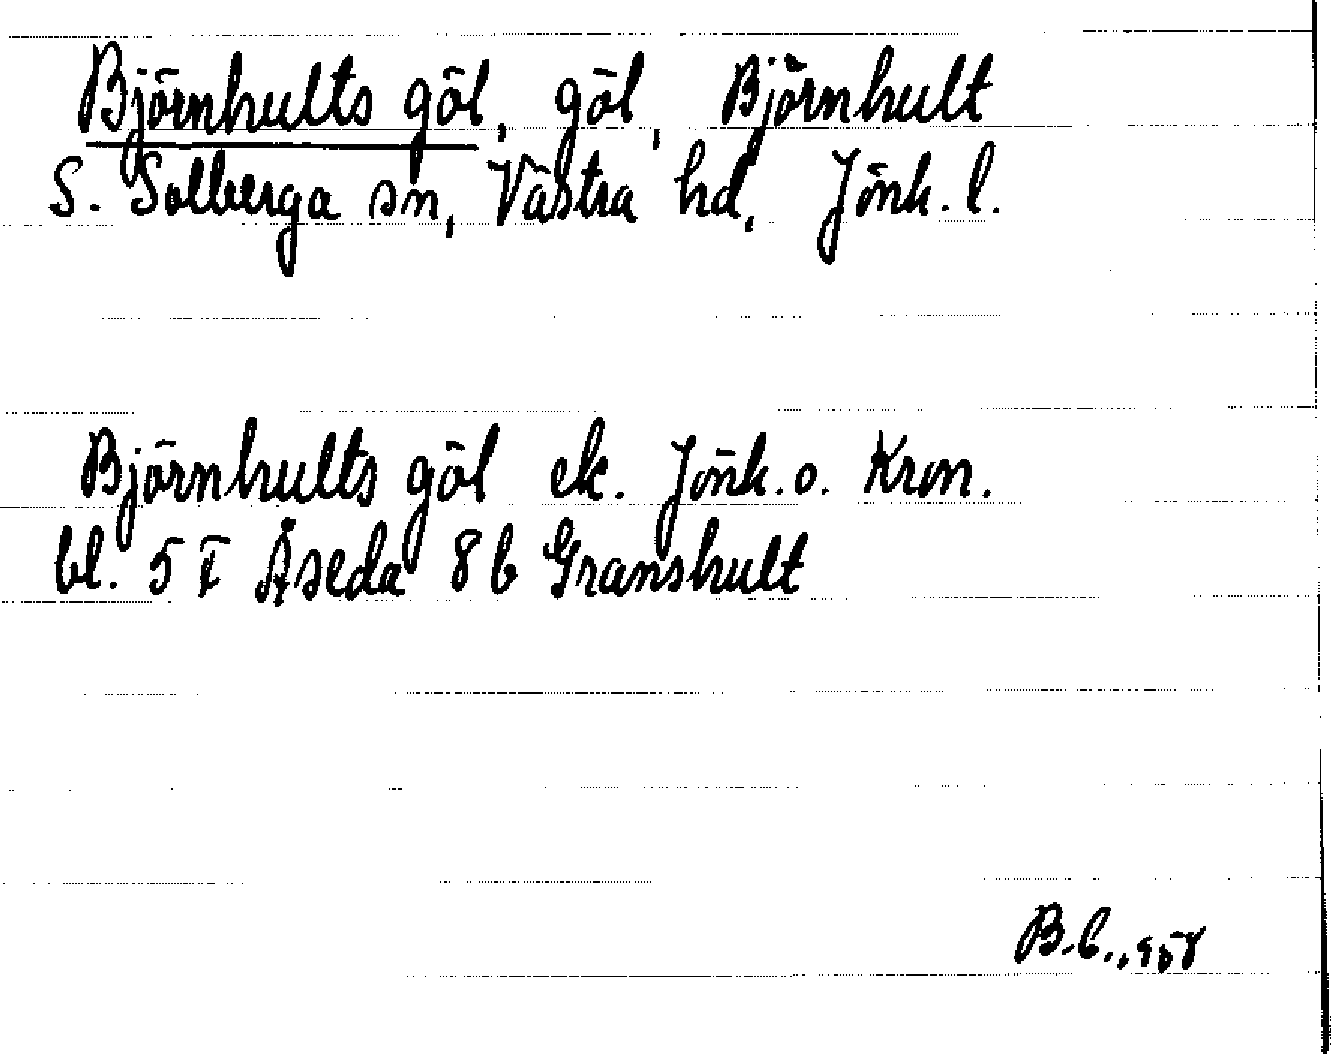 Björnhults göl, göl, Björnhult
S. Solberga sn, Västra hd, Jönk. l.
Björnhults göl ek. Jönk. o. Kron.
bl. 5 F Åseda 8 b Granshult